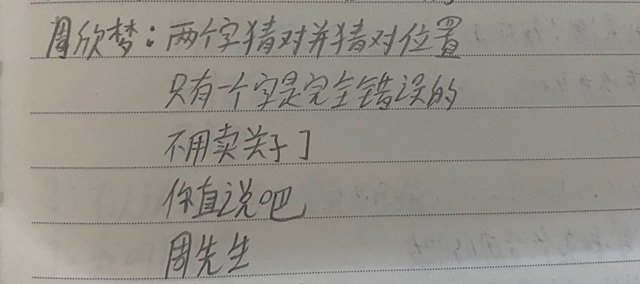 周欣梦：两个字猜对并猜对位置
只有一个字是完全错误的
不用卖关子了
你直说吧
周先生